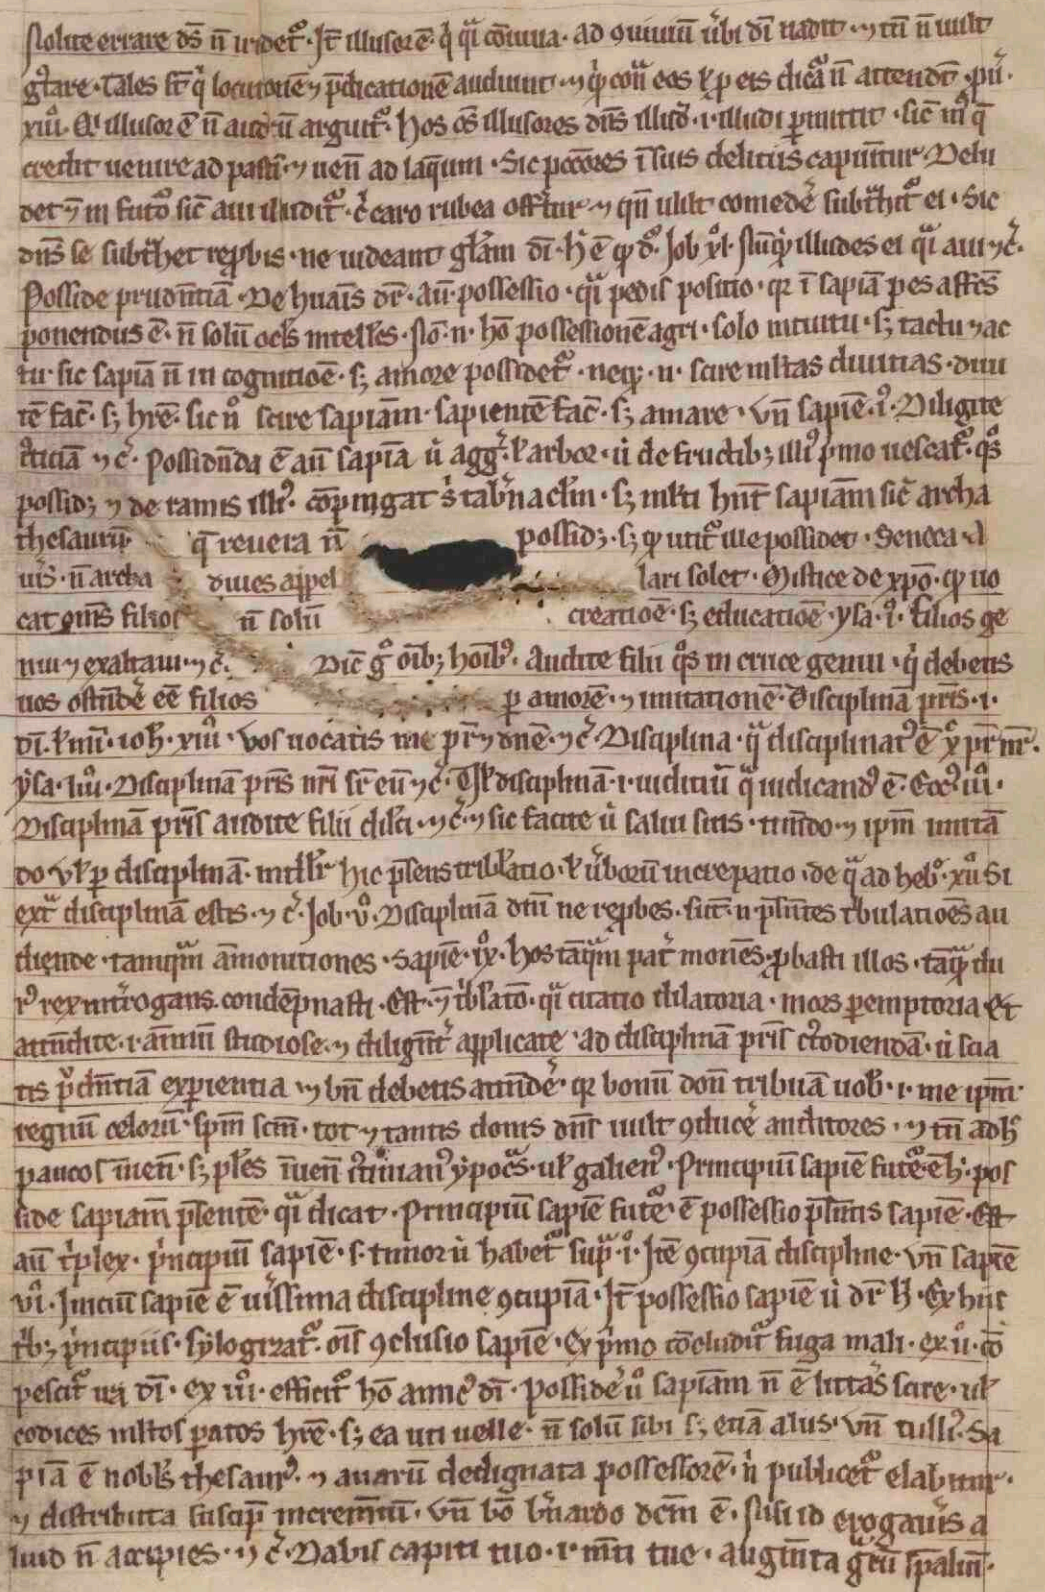 Nolite errare ds̄ n̄ irridet᷑. It̄ illusor ē. q̇ qͣi cōuiua. ad ꝯuiuiū ubi dī uadit. ⁊ tn̄ n̄ uult
gͣtare. Tales st̄ q̇ locutionē ⁊ p̄dicationē audiunt. ⁊ eos ꝑ eis n̄ attendt̄. pu᷑.
xiii. Qi illusor ē n̄ audit arguit᷑. hos oēs illusores dn̄s illudit .i. illudi ꝑmittit. sic̄
credit uenire ad pastū ⁊ uen̄ ad laq̄um. Sic pccōres ī suis delitiis capiūtur. Delu
det᷑ ⁊ in futͦo sic̄ aui illudit᷑. caro rubea offertur ⁊ qn̄ uult comedē subtͣhit᷑ ei. Sic
dn̄s se subtͣhet rep̱bis. ne uideant gl̄am dī. h̄ ē qͦd Job xl. Nūquid illudes ei qͣi aui ⁊c̄.
Posside prudn̄tiā. De huāis dr̄. au᷑ possessio. qͣi pedis positio. qr ī sapiā pes affcs̄
ponendus ē. n̄ solū ocl's intellc̄s. Nō .n. hō possessionē agri. solo intuitu. sꝫ tactu ⁊ ac
tu. sic sapiā n̄ in cognitiōe. sꝫ amore possidet᷑. neqꝫ .n. scire mltas diuitias. diui
tē fac̄. sꝫ hr̄e. sic n̄ scire sapiam̄. sapientē fac̄. sꝫ amare. vn̄ sapiē. i. Diligite
iᷤticiā ⁊c̄. Possidn̄da ē aut̄ sapia ut arbor. ut de fructibꝫ illiꝰ p̓mo uescat᷑. qs
possidꝫ ⁊ de ramis illiꝰ. cōpingat s̓ tab̓naclm̄. sꝫ mlti hn̄t sapiam̄ sic̄ archa
thesaurū q̄ reuera n̄ possidꝫ. sꝫ qͥ utit᷑ ille possidet. Seneca. A
uis n̄ archa diues appel lari solet. Mistice de xp̄o. qͥ uo
cat om̄s filios n̄ solū creatiōe. sꝫ educatiōe. ysa. i. filios ge
nui ⁊ exaltaui. ⁊c̄. Dic̄ gͦ oībꝫ hoībꝰ. Audite filii qͦs in cruce genui. q̇ debetis
uos ostn̄dē eē filios ꝑ amorē. ⁊ imitationē. Disciplinā pr̄is .i.
dī. ioh̄. xiii. vos uocatis me pr̄ ⁊ dnē. ⁊c̄. Disciplina. qͣ disciplinatꝰ ē xp̄c pr̄ nr̄.
ysa. liii. Disciplinā pr̄is nr̄i sr̄ eū ⁊c̄. disciplinā .i. iudiciū q̄ iudicandꝰ ē. Eccꝰ. iii.
Disciplinā pr̄is audite filii dilc̄i. ⁊c̄. ⁊ sic facite ut salui sitis. timēdo. ⁊ ipm̄ imitā
do. vl' ꝑ disciplinā. intll'r hic p̄sens tribl̄atio. l' ūborū increpatio. de qͣ ad hebꝰ. xii. Si
extͣ disciplinā estis. ⁊c̄. Job. v. Disciplinā dn̄i ne rep̱bes. sūt .n. p̄sentes tͥbulatiōes au
diende. tamqͣm āmonitiones. Sapiē. ix. hos tāqͣm pat̓ monēs. p̱basti illos. tāqͣ du
rꝰ rex int̓rogans condēpnasti. Est .n. tͥblatͦo. qͣi citatio dilatoria. mors ꝑemptoria. Et
attn̄dite .i. aīmū studiose. ⁊ diligēt̓ applicate. ad disciplinā pr̄is cͦtodiendā. ut scia
tis pͥdn̄tiā experientia. ⁊ bn̄ debetis attn̄dē. qr bonū donū tribuā uob̄ .i. me ipm̄.
regnū celorū. spm̄ scm̄. tot ⁊ tantis donis dn̄s uult ꝯducē auditores. ⁊ tn̄ adhꝰ
paucos īuen̄. sꝫ pl'es īuen̄ ypocͣs. ul' galienꝰ. Principiū sapiē. pos
side sapiam̄ p̄sentē. qͣi dicat. Principiū sapiē futͤ ē possessio p̄sn̄tis sapiē. Est
au᷑ tͥplex. pͥncipiū sapiē. s. timor ut habet᷑ supͣ. i. Itē ꝯcupiā discipline. vn̄ sapiē
vi. Initiū sapiē ē ūissima discipline ꝯcupiā. It̄ possessio sapiē ut dr̄ h̄. Ex hiis
tͥbꝫ pͥncipiis. sylogizat᷑. oīs ꝯclusio sapiē. Ex pͥmo cōcludit᷑ fuga mali. ex ii. cō
pescit᷑ ira dī. ex iii. efficit᷑ hō amicꝰ dī. Possidē ū sapiam̄ n̄ ē litt̓as scire. ul'
codices mltos paratos hr̄e. sꝫ ea uti uelle. n̄ solū sibi sꝫ etiā aliis. vn̄ tulliꝰ. Sa
piā ē nobl's thesaurꝰ. ⁊ auarū dedignata possessorē. ni publicet᷑ elabitur.
⁊ distributa suscip̄ incremn̄tū. vn̄ bō b̓nardo dcm̄ ē. Nisi id erogaūis a
liud n̄ accipies. ⁊c̄. Dabis capiti tuo .i. mn̄ti tue. augmn̄ta gͣtiarū sp̄aliū.